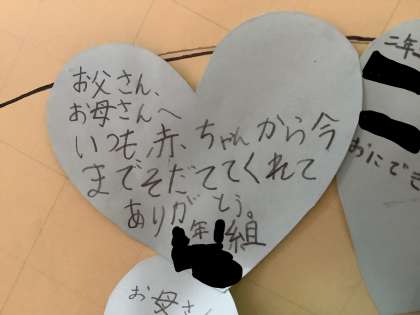 お父さん、
お母さんへ
いつも、赤ちゃんから今
までそだててくれて
ありがとう。
年 組
二年
おにでき
お母さん